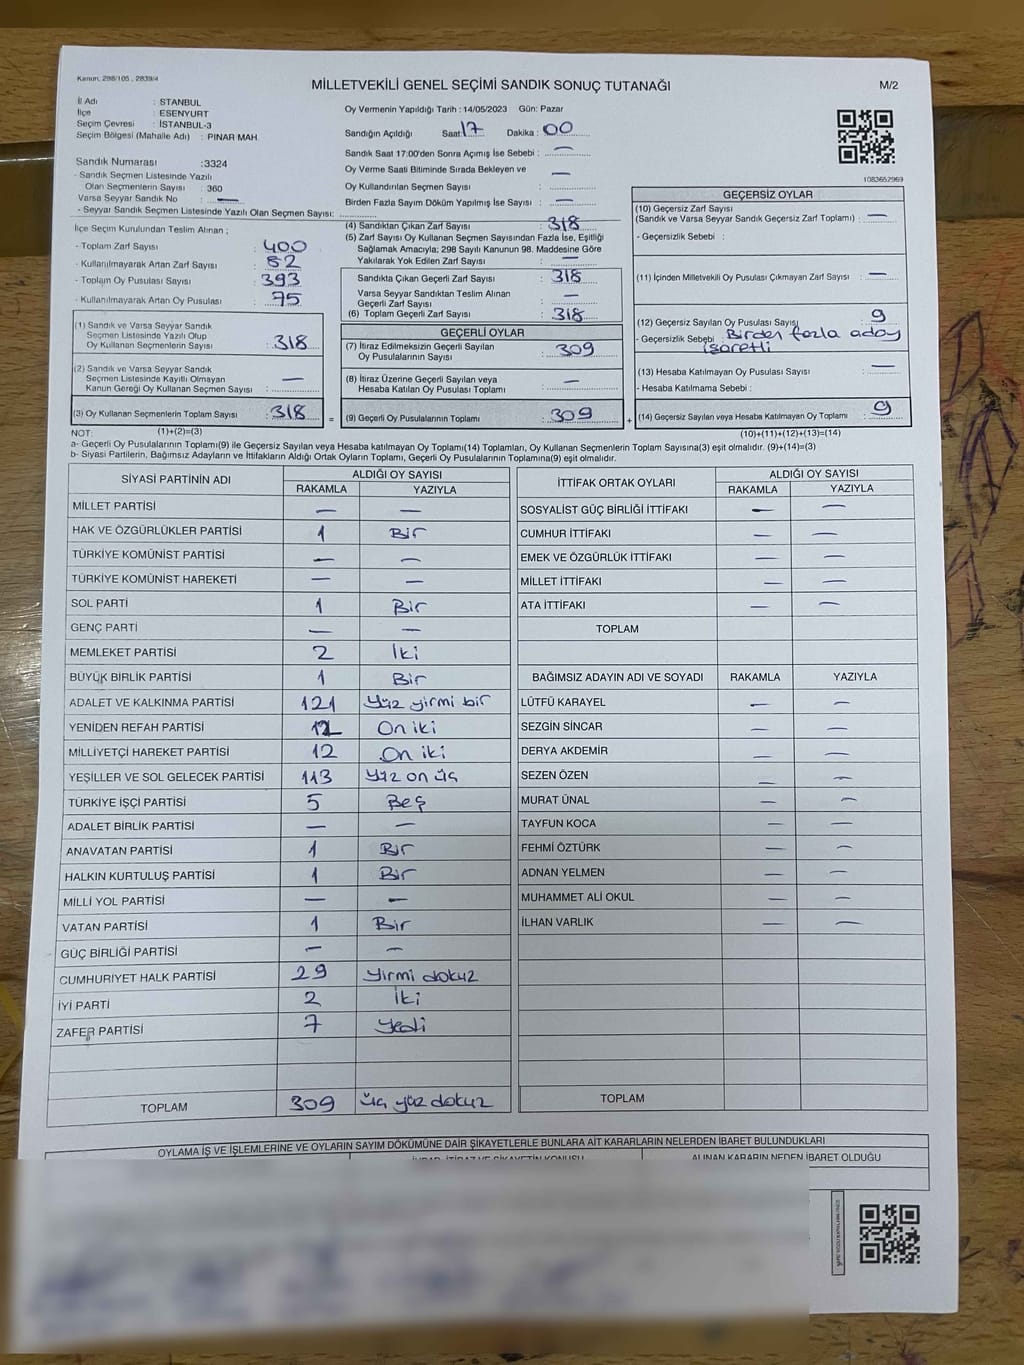 Kanun, 298/105 , 2839/4
MİLLETVEKİLİ GENEL SEÇİMİ SANDIK SONUÇ TUTANAĞI
M/2
İl Adı : İSTANBUL
İlçe : ESENYURT
Seçim Çevresi : İSTANBUL-3
Seçim Bölgesi (Mahalle Adı) : PINAR MAH.
Sandık Numarası :3324
- Sandık Seçmen Listesinde Yazılı
Olan Seçmenlerin Sayısı : 360
Varsa Seyyar Sandık No —
- Seyyar Sandık Seçmen Listesinde Yazılı Olan Seçmen Sayısı:
İlçe Seçim Kurulundan Teslim Alınan ;
- Toplam Zarf Sayısı : 400
- Kullanılmayarak Artan Zarf Sayısı : 82
- Toplam Oy Pusulası Sayısı : 393
- Kullanılmayarak Artan Oy Pusulası : 75
(1) Sandık ve Varsa Seyyar Sandık
Seçmen Listesinde Yazılı Olup
Oy Kullanan Seçmenlerin Sayısı : 318
(2) Sandık ve Varsa Seyyar Sandık
Seçmen Listesinde Kayıtlı Olmayan
Kanun Gereği Oy Kullanan Seçmen Sayısı : —
(3) Oy Kullanan Seçmenlerin Toplam Sayısı : 318
(1)+(2)=(3)
Oy Vermenin Yapıldığı Tarih : 14/05/2023 Gün: Pazar
Sandığın Açıldığı Saat: 17 Dakika : 00
Sandık Saat 17:00'den Sonra Açımış İse Sebebi : —
Oy Verme Saati Bitiminde Sırada Bekleyen ve —
Oy Kullandırılan Seçmen Sayısı :
Birden Fazla Sayım Döküm Yapılmış İse Sayısı : —
(4) Sandıktan Çıkan Zarf Sayısı : 318
(5) Zarf Sayısı Oy Kullanan Seçmen Sayısından Fazla İse, Eşitliği
Sağlamak Amacıyla; 298 Sayılı Kanunun 98. Maddesine Göre
Yakılarak Yok Edilen Zarf Sayısı : —
Sandıkta Çıkan Geçerli Zarf Sayısı : 318
Varsa Seyyar Sandıktan Teslim Alınan —
Geçerli Zarf Sayısı
(6) Toplam Geçerli Zarf Sayısı : 318
GEÇERLİ OYLAR
(7) İtiraz Edilmeksizin Geçerli Sayılan
Oy Pusulalarının Sayısı : 309
(8) İtiraz Üzerine Geçerli Sayılan veya
Hesaba Katılan Oy Pusulası Toplamı : —
= (9) Geçerli Oy Pusulalarının Toplamı : 309 +
1083652969
GEÇERSİZ OYLAR
(10) Geçersiz Zarf Sayısı
(Sandık ve Varsa Seyyar Sandık Geçersiz Zarf Toplamı) : —
- Geçersizlik Sebebi :
(11) İçinden Milletvekili Oy Pusulası Çıkmayan Zarf Sayısı : —
(12) Geçersiz Sayılan Oy Pusulası Sayısı : 9
- Geçersizlik Sebebi : Birden fazla aday
işaretli
(13) Hesaba Katılmayan Oy Pusulası Sayısı : —
- Hesaba Katılmama Sebebi :
(14) Geçersiz Sayılan veya Hesaba Katılmayan Oy Toplamı : 9
(10)+(11)+(12)+(13)=(14)
NOT:
a- Geçerli Oy Pusulalarının Toplamı(9) ile Geçersiz Sayılan veya Hesaba katılmayan Oy Toplamı(14) Toplamları, Oy Kullanan Seçmenlerin Toplam Sayısına(3) eşit olmalıdır. (9)+(14)=(3)
b- Siyasi Partilerin, Bağımsız Adayların ve İttifakların Aldığı Ortak Oyların Toplamı, Geçerli Oy Pusulalarının Toplamına(9) eşit olmalıdır.
SİYASİ PARTİNİN ADI ALDIĞI OY SAYISI
RAKAMLA YAZIYLA
MİLLET PARTİSİ — —
HAK VE ÖZGÜRLÜKLER PARTİSİ 1 Bir
TÜRKİYE KOMÜNİST PARTİSİ — —
TÜRKİYE KOMÜNİST HAREKETİ — —
SOL PARTİ 1 Bir
GENÇ PARTİ — —
MEMLEKET PARTİSİ 2 İki
BÜYÜK BİRLİK PARTİSİ 1 Bir
ADALET VE KALKINMA PARTİSİ 121 Yüz yirmi bir
YENİDEN REFAH PARTİSİ 12 On iki
MİLLİYETÇİ HAREKET PARTİSİ 12 On iki
YEŞİLLER VE SOL GELECEK PARTİSİ 113 Yüz on üç
TÜRKİYE İŞÇİ PARTİSİ 5 Beş
ADALET BİRLİK PARTİSİ — —
ANAVATAN PARTİSİ 1 Bir
HALKIN KURTULUŞ PARTİSİ 1 Bir
MİLLİ YOL PARTİSİ — —
VATAN PARTİSİ 1 Bir
GÜÇ BİRLİĞİ PARTİSİ — —
CUMHURİYET HALK PARTİSİ 29 Yirmi dokuz
İYİ PARTİ 2 İki
ZAFER PARTİSİ 7 Yedi
TOPLAM 309 üç yüz dokuz
İTTİFAK ORTAK OYLARI ALDIĞI OY SAYISI
RAKAMLA YAZIYLA
SOSYALİST GÜÇ BİRLİĞİ İTTİFAKI — —
CUMHUR İTTİFAKI — —
EMEK VE ÖZGÜRLÜK İTTİFAKI — —
MİLLET İTTİFAKI — —
ATA İTTİFAKI — —
TOPLAM
BAĞIMSIZ ADAYIN ADI VE SOYADI RAKAMLA YAZIYLA
LÜTFÜ KARAYEL — —
SEZGİN SİNCAR — —
DERYA AKDEMİR — —
SEZEN ÖZEN — —
MURAT ÜNAL — —
TAYFUN KOCA — —
FEHMİ ÖZTÜRK — —
ADNAN YELMEN — —
MUHAMMET ALİ OKUL — —
İLHAN VARLIK — —
TOPLAM
OYLAMA İŞ VE İŞLEMLERİNE VE OYLARIN SAYIM DÖKÜMÜNE DAİR ŞİKAYETLERLE BUNLARA AİT KARARLARIN NELERDEN İBARET BULUNDUKLARI
ALINAN KARARIN NEDEN İBARET OLDUĞU